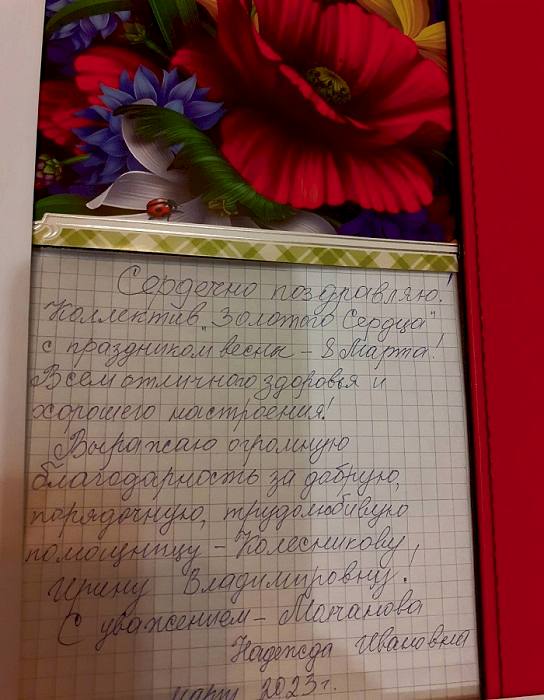 Сердечно поздравляю!
Коллектив "Золотого Сердца"
с праздником весны - 8 Марта!
Всем отличного здоровья и
хорошего настроения!
Выражаю огромную
благодарность за добрую,
порядочную, трудолюбивую
помощницу - Колесникову
Ирину Владимировну!
С уважением - Мачанова
Надежда Ивановна
март 2023 г.